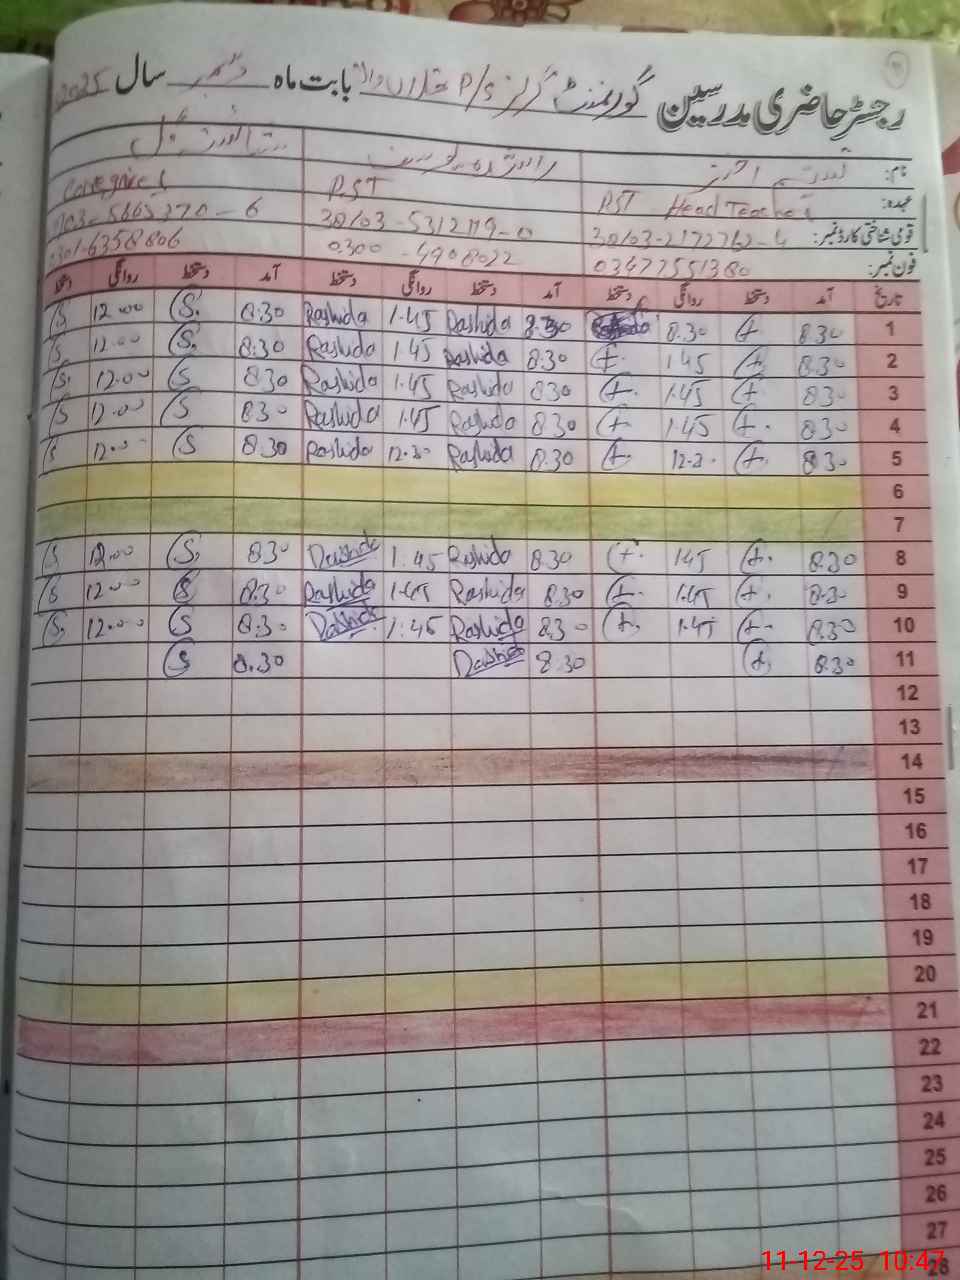 رجسٹر حاضری مدرسین گورنمنٹ گرلز P/S بابت ماہ دسمبر سال 2025
نام:
عہدہ: PST Head Teacher PST Caregiver
قومی شناختی کارڈ نمبر:
فون نمبر: 03477551380 0300-4908022 0301-6358806
تاریخ آمد دستخط روانگی دستخط آمد دستخط روانگی دستخط آمد دستخط روانگی دستخط
1 8.30 t. 8.30 8.30 Rashida 1.45 Rashida 8.30 S. 12.00 S
2 8.30 t. 1.45 t. 8.30 Rashida 1.45 Rashida 8.30 S. 12.00 S.
3 8.30 t. 1.45 t. 8.30 Rashida 1.45 Rashida 8.30 S 12.00 S.
4 8.30 t. 1.45 t. 8.30 Rashida 1.45 Rashida 8.30 S 12.00 S
5 8.30 t. 12.30 t. 8.30 Rashida 12.30 Rashida 8.30 S 12.00 S
6
7
8 8.30 t. 1.45 t. 8.30 Rashida 1.45 Rashida 8.30 S. 12.00 S
9 8.30 t. 1.45 t. 8.30 Rashida 1.45 Rashida 8.30 S 12.00 S
10 8.30 t. 1.45 t. 8.30 Rashida 1.45 Rashida 8.30 S 12.00 S.
11 8.30 t. 8.30 Rashida 8.30 S
12
13
14
15
16
17
18
19
20
21
22
23
24
25
26
27
28
11-12-25 10:47